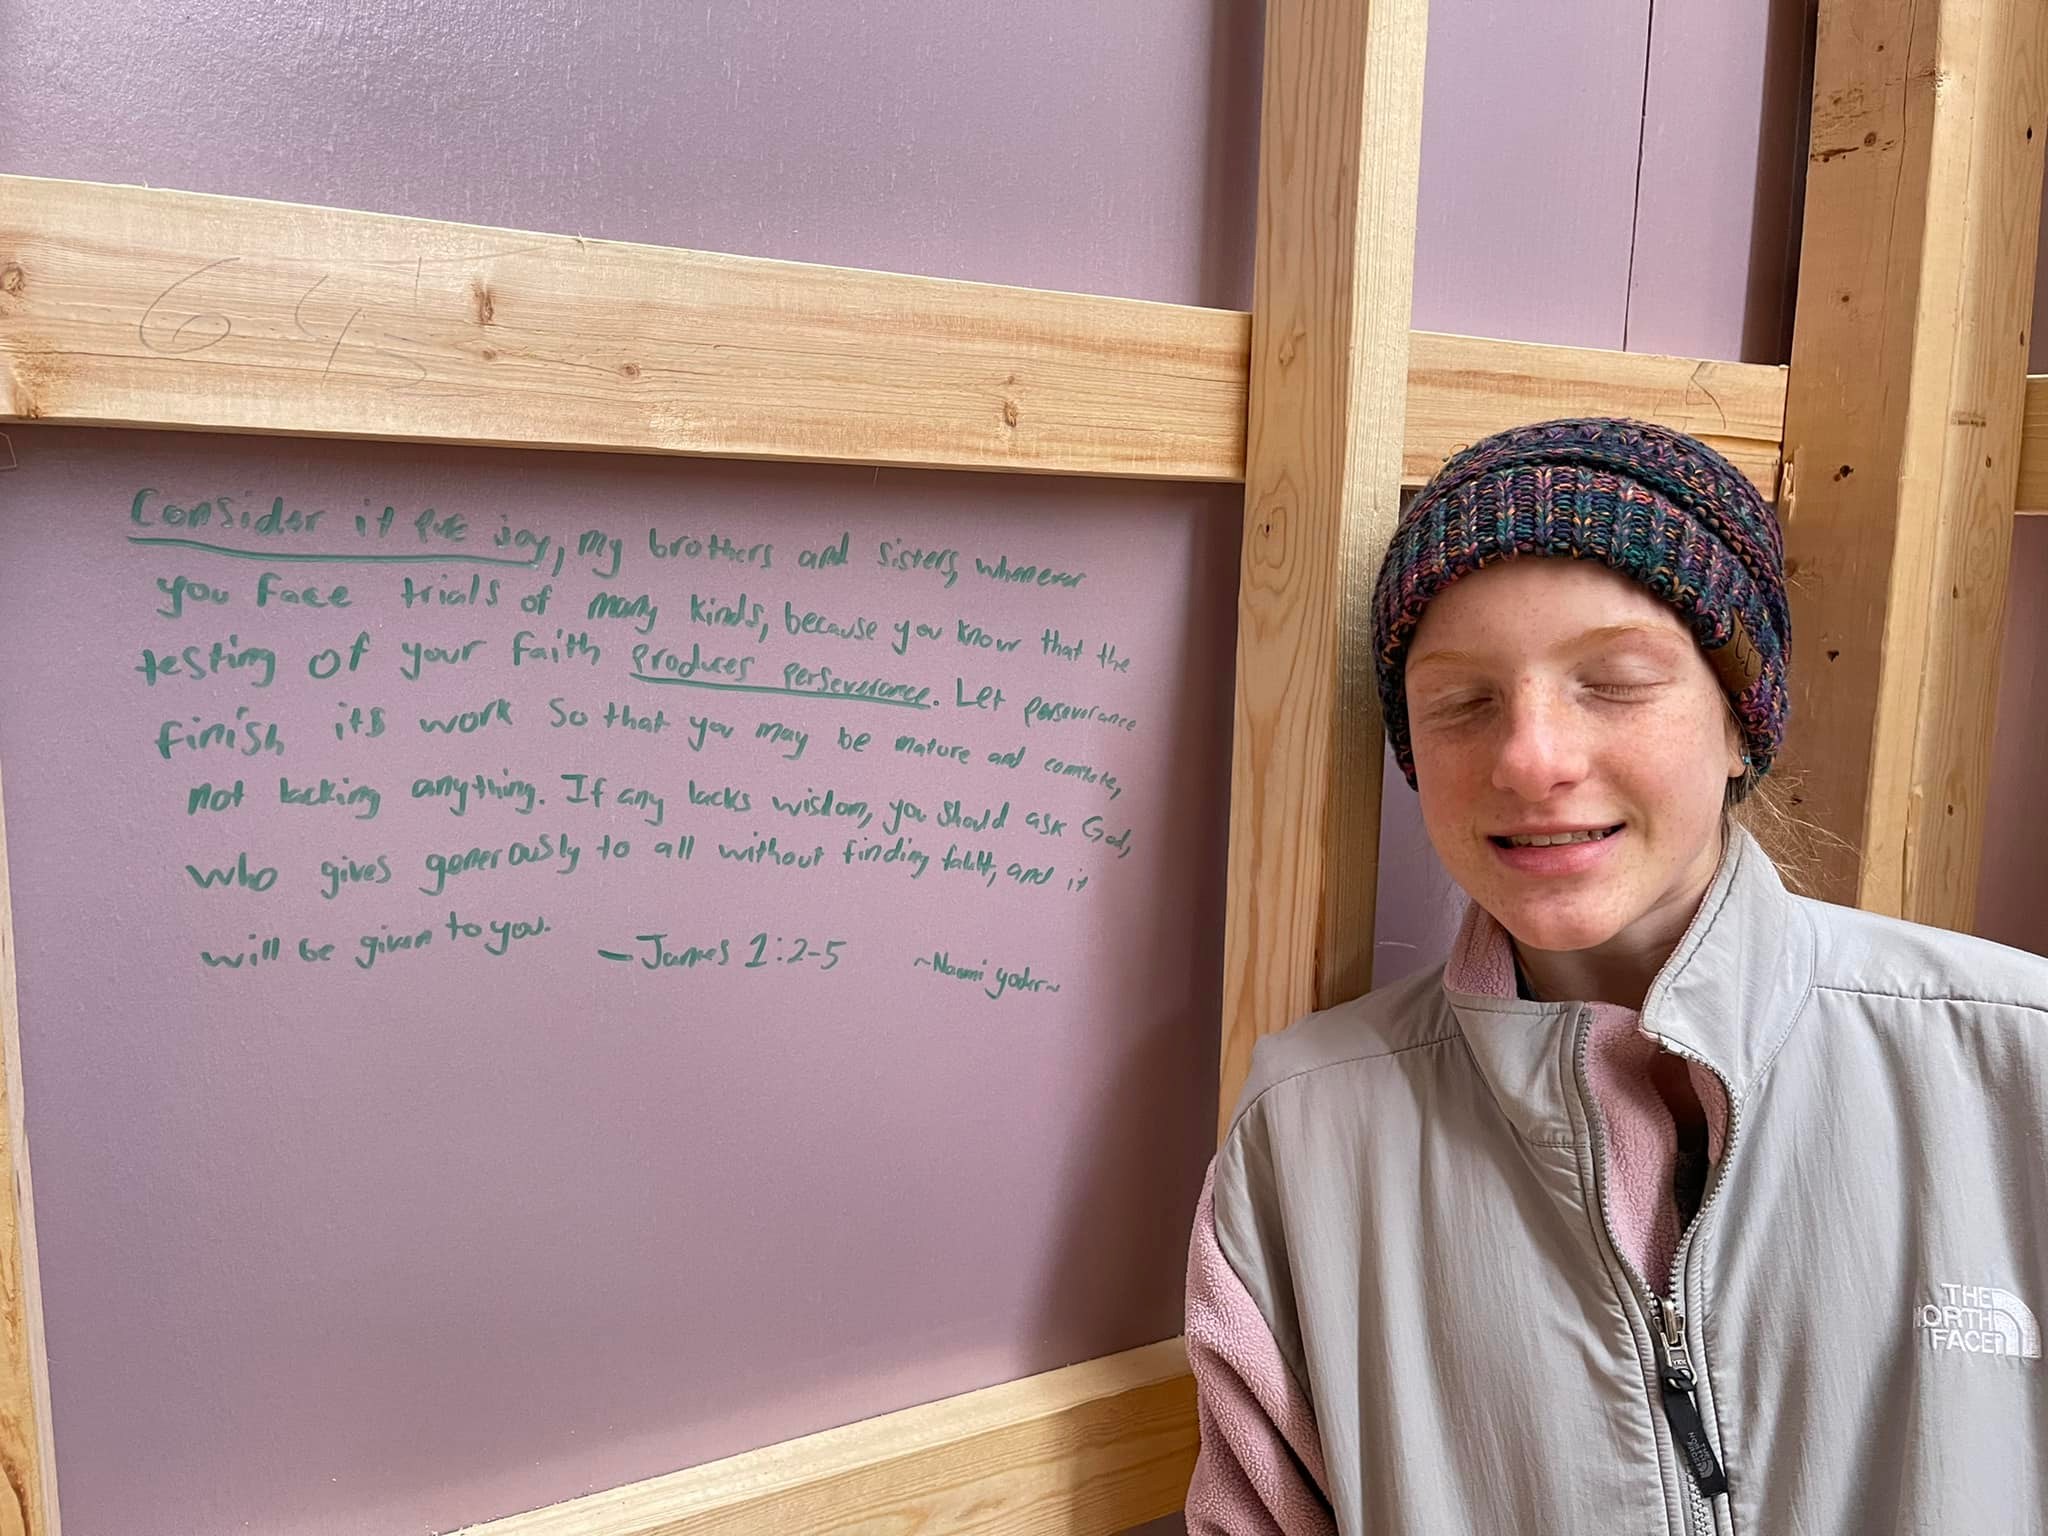 645
Consider it pure joy, my brothers and sisters, whenever
you face trials of many kinds, because you know that the
testing of your faith produces perseverance. Let perseverance
finish its work so that you may be mature and complete,
not lacking anything. If any lacks wisdom, you should ask God,
who gives generously to all without finding fault, and it
will be given to you. —James 1:2-5 ~Naomi Yoder~
THE
NORTH
FACE